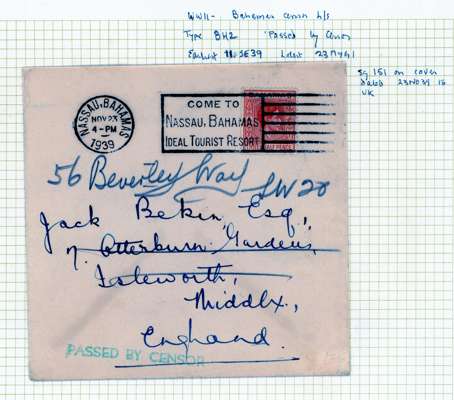 WWII - Bahamas censor h/s
Type BH2 'Passed by Censor
Earliest 11 SE39 Latest 23 MY41
Sg 151 on cover
dated 23NO39 to
UK
NASSAU, BAHAMAS
NOV 23
4 - PM
1939
COME TO
NASSAU, BAHAMAS
IDEAL TOURIST RESORT
56 Beverley Way SW20
Jack Bekin, Esq.,
7. Otterburn Gardens,
Isleworth,
Middlx,
England.
PASSED BY CENSOR